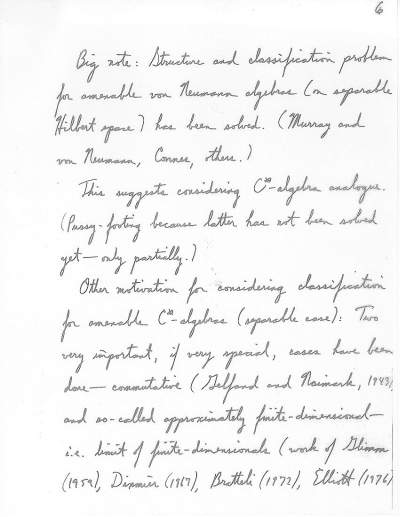 6
Big note: Structure and classification problem
for amenable von Neumann algebras (on separable
Hilbert space) has been solved. (Murray and
von Neumann, Connes, others.)
This suggests considering C*-algebra analogue.
(Pussy-footing because latter has not been solved
yet — only partially.)
Other motivation for considering classification
for amenable C*-algebras (separable case): Two
very important, if very special, cases have been
done — commutative (Gelfand and Naimark, 1943),
and so-called approximately finite-dimensional —
i.e. limit of finite-dimensionals (work of Glimm
(1959), Dixmier (1967), Bratteli (1972), Elliott (1976)